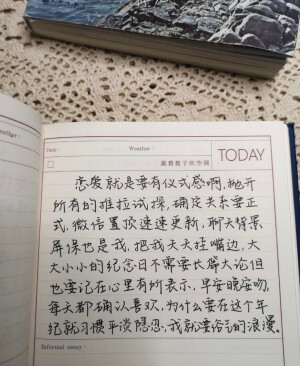 Weather:
Date:
Weather:
裹着被子吹空调
TODAY
恋爱就是要有仪式感啊,抛开
所有的推拉试探,确定关系要正
式,微信置顶速速更新,聊天背景
屏保也是我,把我天天挂嘴边,大
大小小的纪念日不需要长篇大论但
也要记在心里有所表示,早安晚安吻,
每天都确认喜欢,为什么要在这个年
纪就习惯平淡隐忍,我就要俗气的浪漫。
Informal essay: